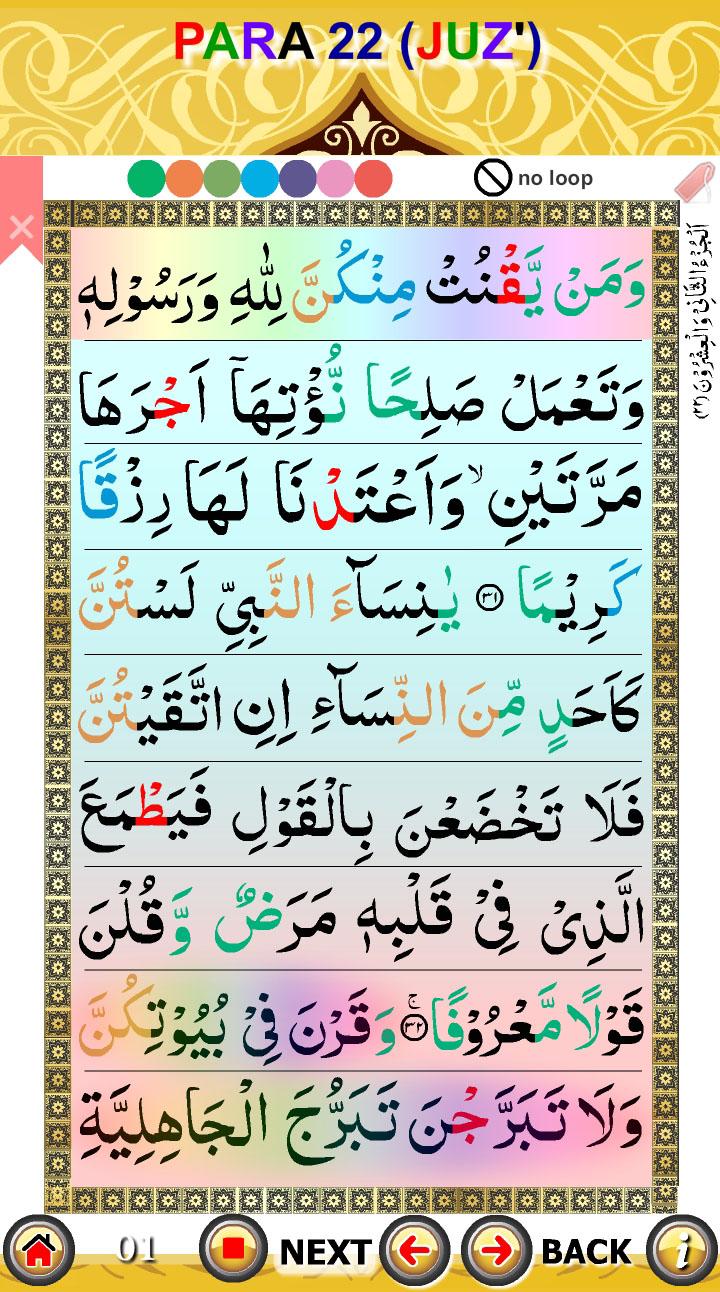 PARA 22 (JUZ')
no loop
اَلْجُزْءُ الثَّانِیْ وَالْعِشْرُوْنَ (۲۲)
وَمَنْ يَّقْنُتْ مِنْكُنَّ لِلّٰهِ وَرَسُوْلِهٖ
وَتَعْمَلْ صَلِحًا نُّؤْتِهَآ اَجْرَهَا
مَرَّتَيْنِ ۙ وَاَعْتَدْنَا لَهَا رِزْقًا
كَرِيْمًا ۝۳۱ يٰنِسَآءَ النَّبِيِّ لَسْتُنَّ
كَاَحَدٍ مِّنَ النِّسَآءِ اِنِ اتَّقَيْتُنَّ
فَلَا تَخْضَعْنَ بِالْقَوْلِ فَيَطْمَعَ
الَّذِیْ فِیْ قَلْبِهٖ مَرَضٌ وَّقُلْنَ
قَوْلًا مَّعْرُوْفًا ۝۳۲ۚ وَقَرْنَ فِیْ بُيُوْتِكُنَّ
وَلَا تَبَرَّجْنَ تَبَرُّجَ الْجَاهِلِيَّةِ
01 NEXT BACK i